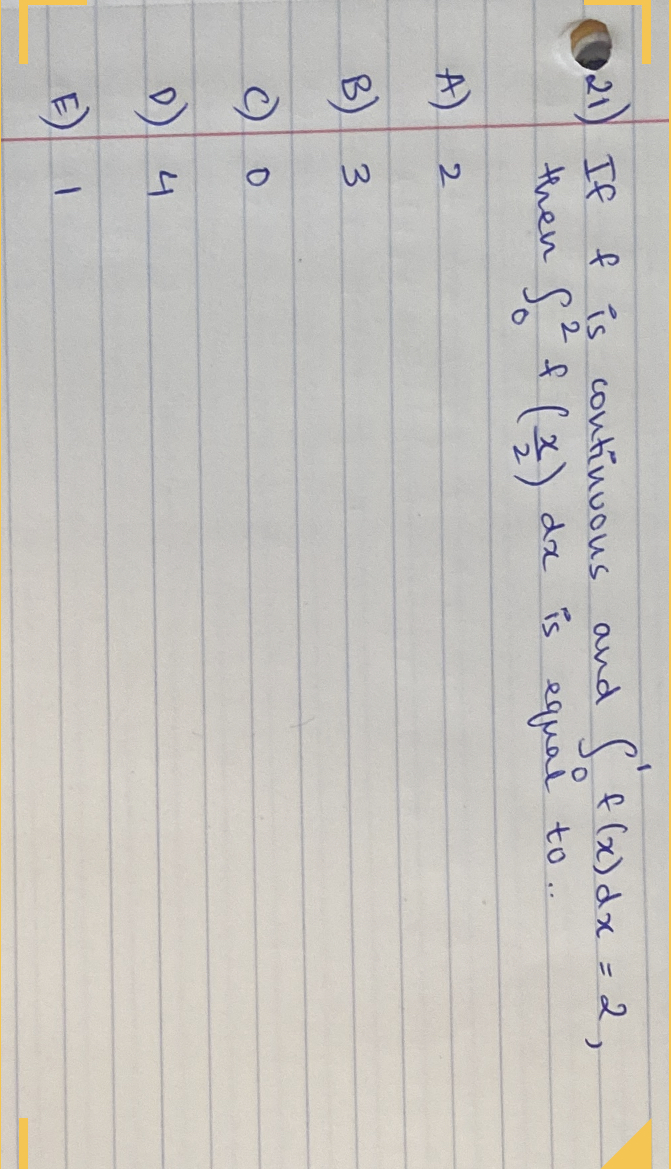 21) If f is continuous and ∫₀¹ f(x)dx = 2,
then ∫₀² f(x/2) dx is equal to..
A) 2
B) 3
C) 0
D) 4
E) 1